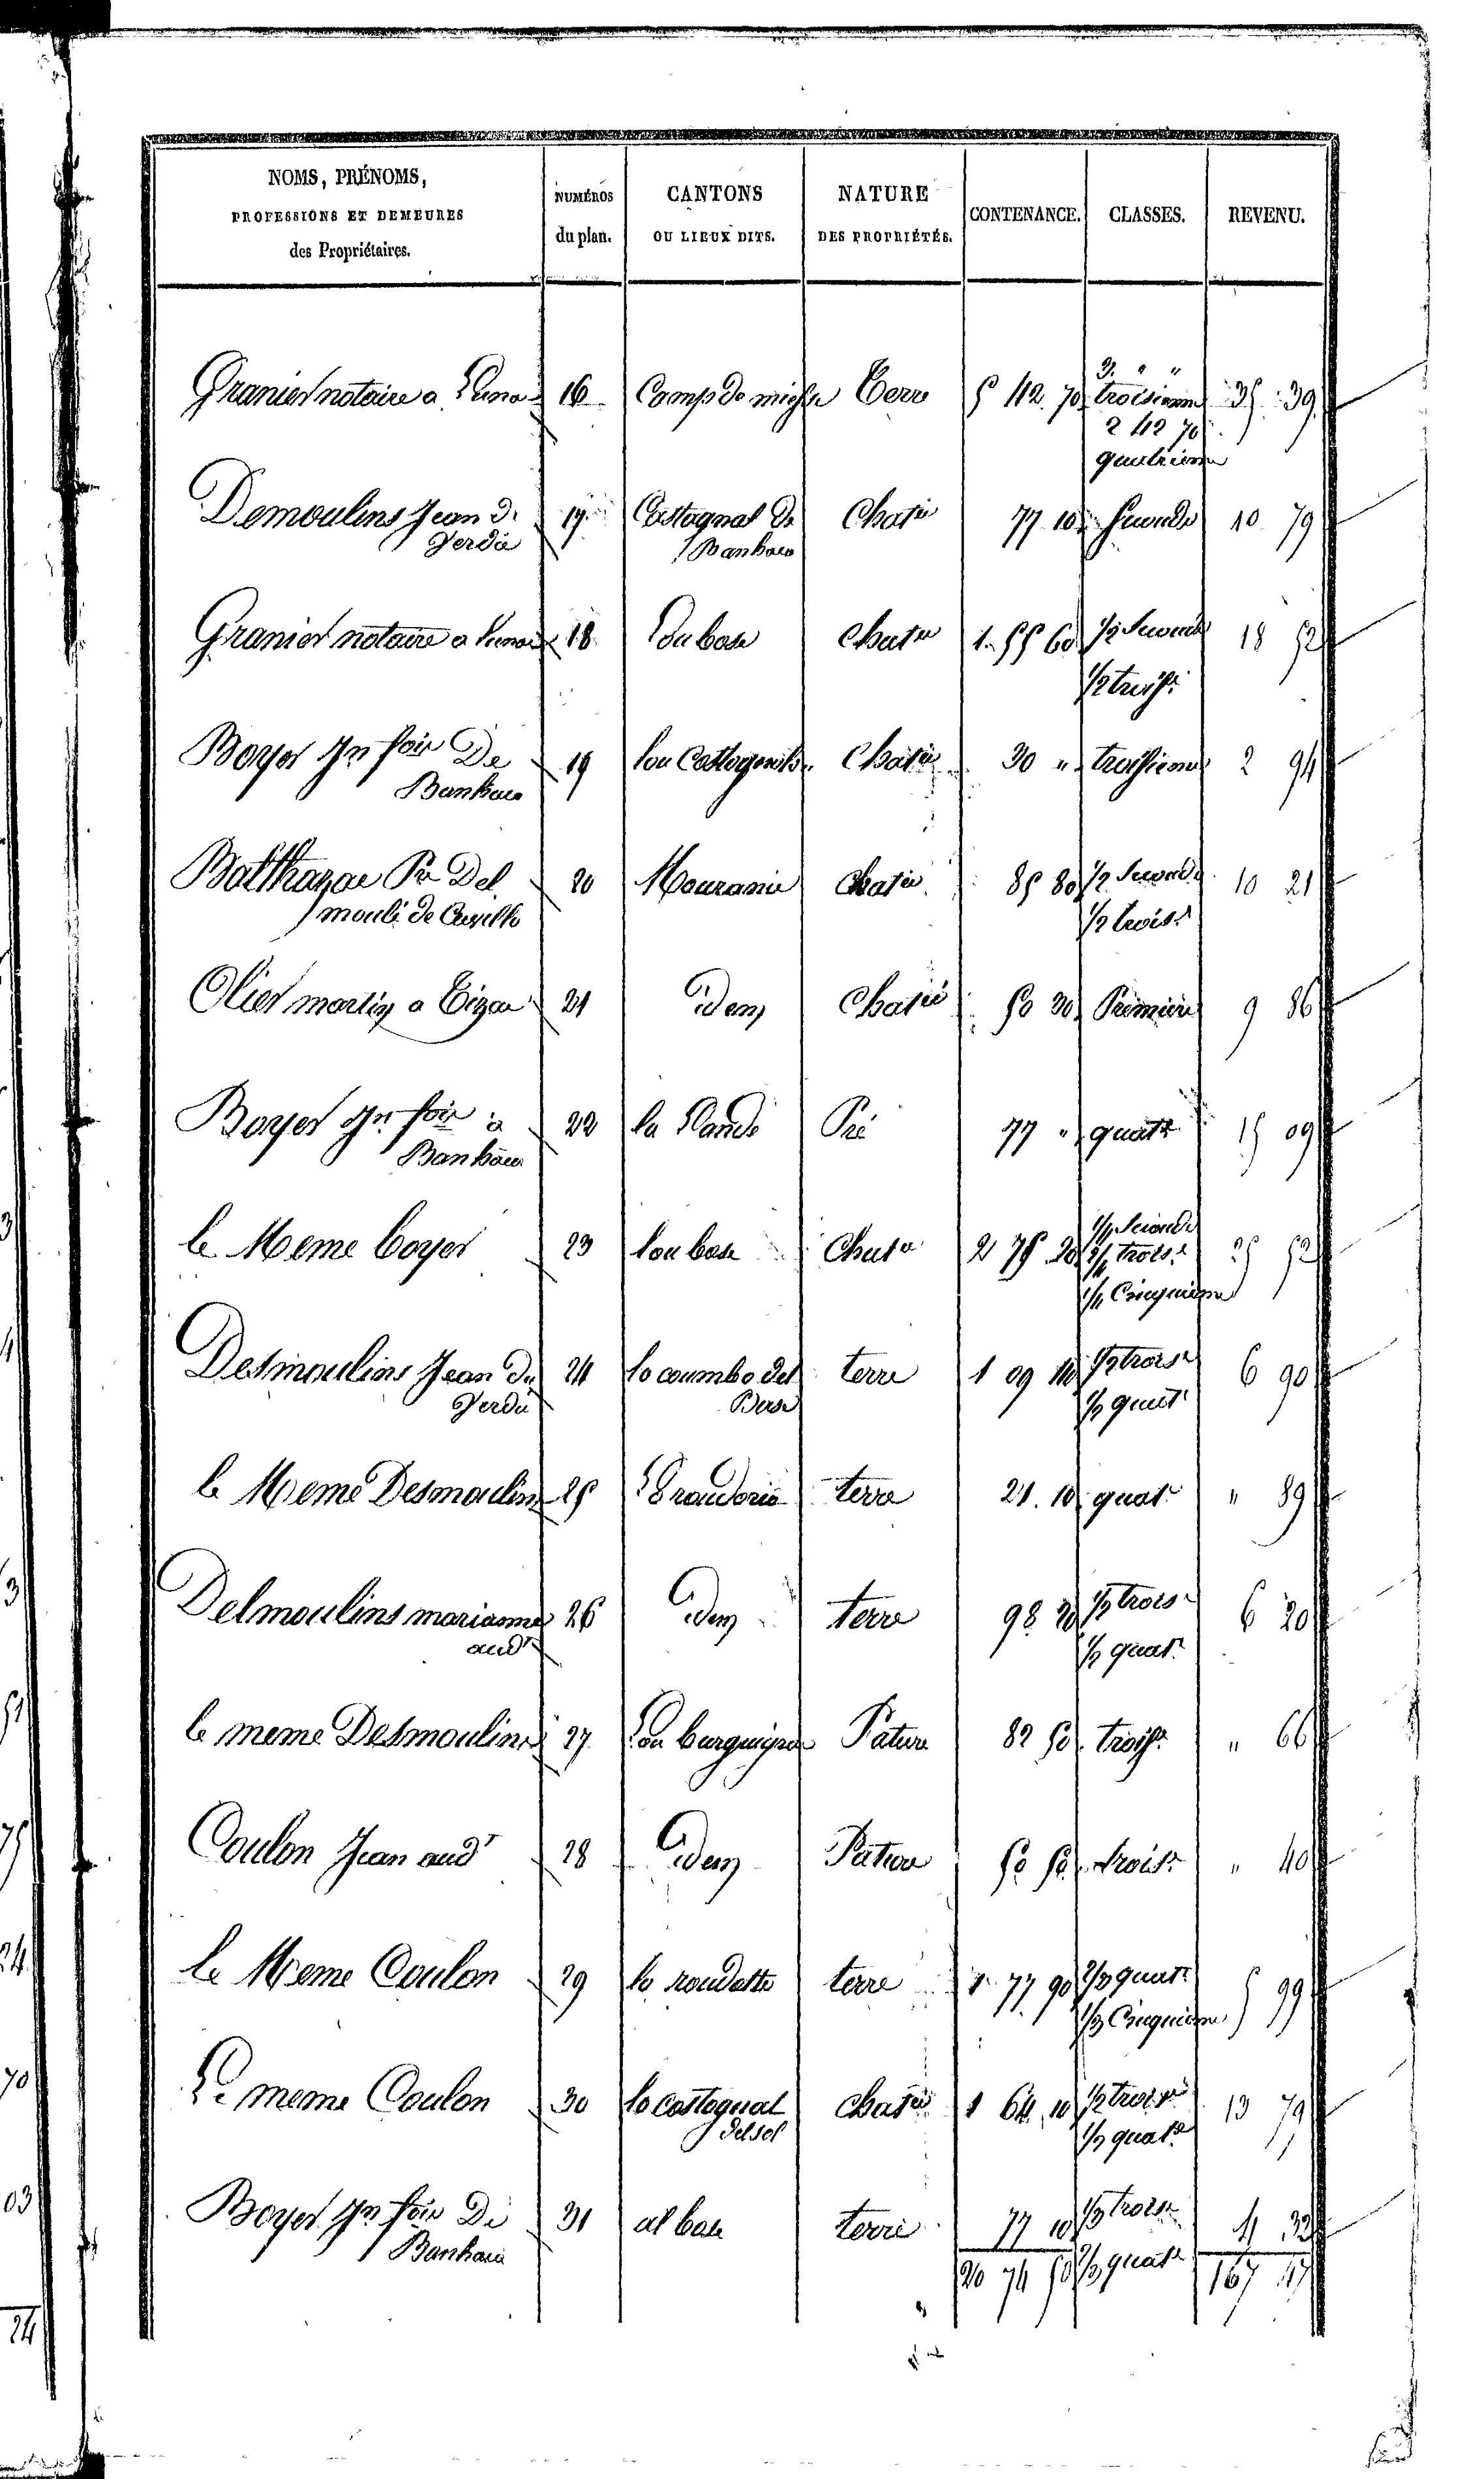 NOMS, PRÉNOMS,
PROFESSIONS ET DEMEURES
des Propriétaires.
NUMÉROS
du plan.
CANTONS
OU LIEUX DITS.
NATURE
DES PROPRIÉTÉS.
CONTENANCE.
CLASSES.
REVENU.
3. " "
Granier notaire a 16 Terre 5 42 70 troisieme 35 39
2 42 70
quatrieme
Demoulins Jean de 17 Castagnal de Chatie 77 10 seconde 10 79
Verdie Banhars
Granier notaire a 18 Lou bosc Chatie 1 55 60 1/2 seconde 18 52
1/2 trois
Boyer Jn De 19 Chatie 30 " troisieme 2 94
Banhars
Balthazar Pre Del 20 Mouranie Chatie 85 80 1/2 seconde 10 21
mouli de 1/2 trois
Olier martin a 21 idem Chatie 50 30 Premiere 9 86
Boyer Jn a 22 la Lande Pré 77 " quat 15 09
Banhars
1/4 seconde
le Meme boyer 23 lou bosc Chatie 2 75 20 2/4 trois 25 52
1/4 Cinquieme
Desmoulins Jean de 24 lo coumbo del terre 1 09 40 1/2 trois 6 90
Verdie Bosc 1/2 quat
le Meme Desmoulins 25 terre 21 10 quat " 89
Delmoulins marianne 26 idem terre 98 20 1/2 trois 6 20
aud 1/2 quat
le meme Desmoulins 27 Lou burguignou Pature 82 50 trois " 66
Coulon Jean aud 28 idem Pature 50 50 trois " 40
le Meme Coulon 29 lo roudette terre 1 77 90 2/3 quat 5 99
1/3 Cinquieme
Le meme Coulon 30 lo castagnal Chatie 1 64 10 1/2 trois 13 79
del sol 1/2 quat
Boyer Jn De 31 al bosc terre 77 10 1/3 trois 4 32
Banhars 2/3 quat
20 74 50 167 47